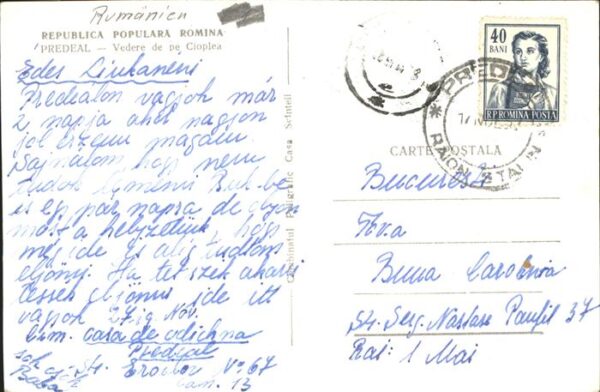 Rumänien
REPUBLICA POPULARA ROMINA
PREDEAL — Vedere de pe Cioplea
Edes Liukaneni
Predealon vagyok már
2 napja ahol nagyon
jol érzem magam.
Sajnálom hogy nem
tudok menni Buk-be
es egy par napra de olyan
most a helyzetük, hogy
még ide is alig tudtam
eljönni. Ha tetszek akarni
tessek eljönni ide itt
vagyok 27 ig Nov.
Cim. casa de odichna
Predeal
Str. Eroilor No 67
Cam. 13
Baba
Combinatul Poligrafic Casa Scînteii
40
BANI
R.P. ROMINA POSTA
PREDEAL
17 NOV
RAION STALIN
CARTE POSTALA
Bucureşti
Buna Carolina
Str. Serg. Nastase Pamfil 37
Rai: 1 Mai